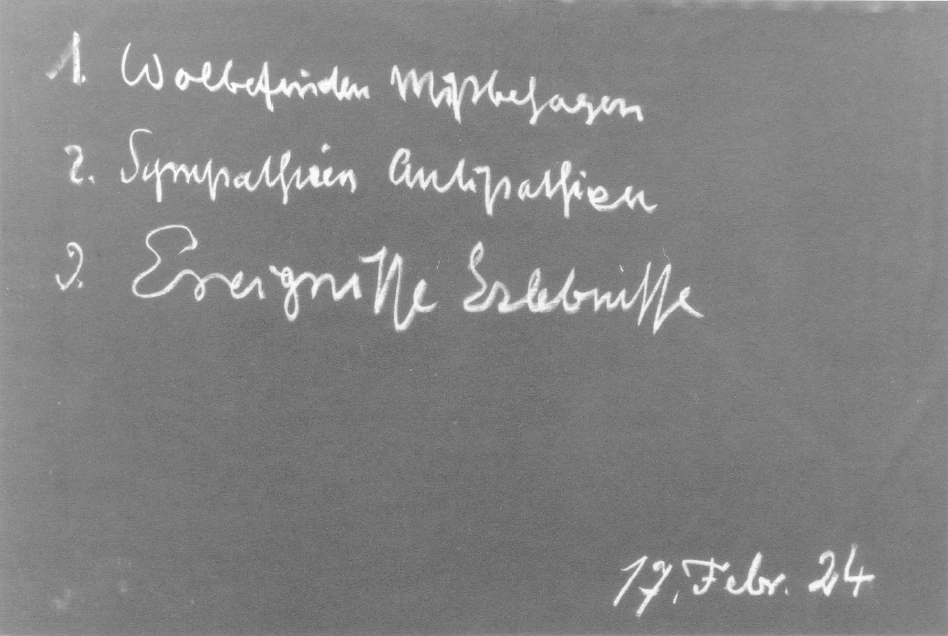 1. Wolbefinden Mißbehagen
2. Sympathien Antipathien
3. Ereignisse Erlebnisse
17. Febr. 24